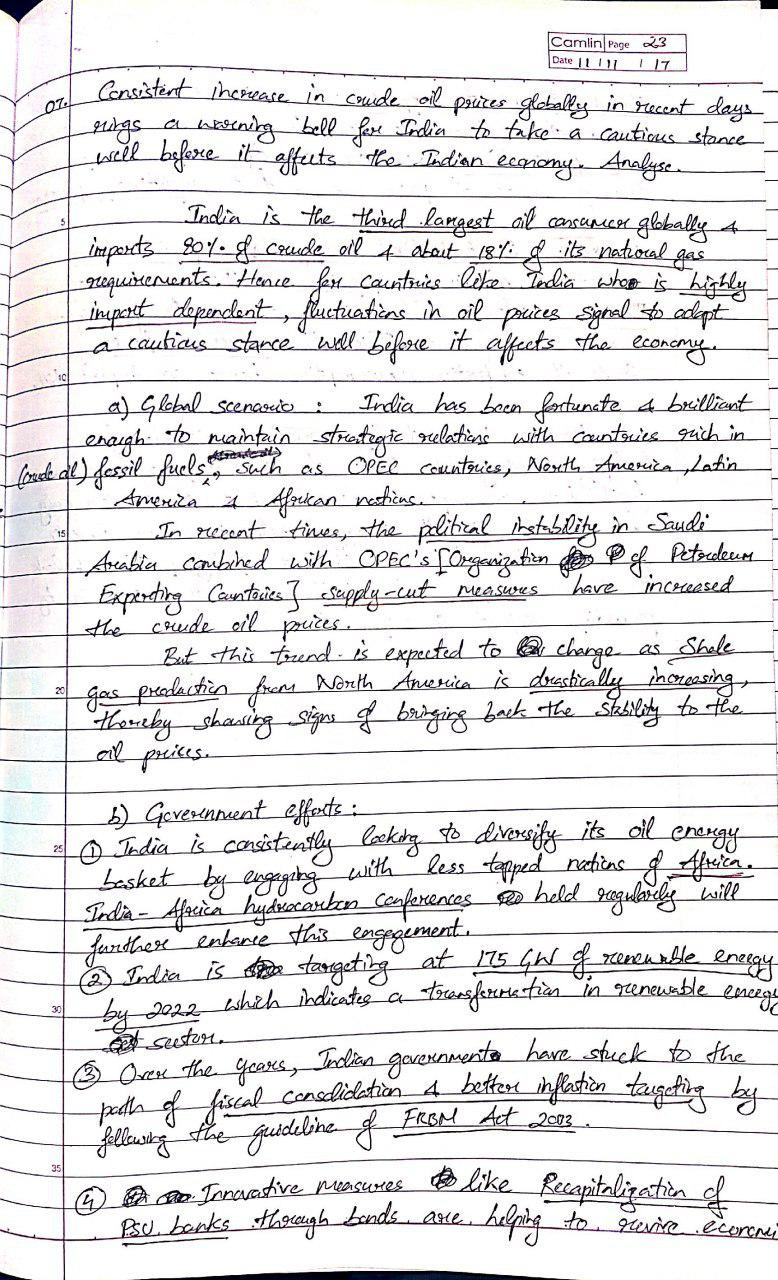 Camlin Page 23
Date 11 / 11 / 17
07. Consistent increase in crude oil prices globally in recent days
rings a warning bell for India to take a cautious stance
well before it affects the Indian economy. Analyse.
5
India is the third largest oil consumer globally &
imports 80% of crude oil & about 18% of its natural gas
requirements. Hence for countries like India who is highly
import dependent, fluctuations in oil prices signal to adopt
a cautious stance well before it affects the economy.
10
a) Global scenario : India has been fortunate & brilliant
enough to maintain strategic relations with countries rich in
(crude oil) fossil fuels, such as OPEC countries, North America, Latin
America & African nations.
15 In recent times, the political instability in Saudi
Arabia combined with OPEC's [Organization of Petroleum
Exporting Countries] supply-cut measures have increased
the crude oil prices.
But this trend is expected to change as Shale
20 gas production from North America is drastically increasing,
thereby showing signs of bringing back the stability to the
oil prices.
b) Government efforts :
25 ① India is consistently looking to diversify its oil energy
basket by engaging with less tapped nations of Africa.
India - Africa hydrocarbon conferences held regularly will
further enhance this engagement.
② India is targeting at 175 GW of renewable energy
30 by 2022 which indicates a transformation in renewable energy
sector.
③ Over the years, Indian government have stuck to the
path of fiscal consolidation & better inflation targeting by
following the guideline of FRBM Act 2003.
35
④ Innovative measures like Recapitalization of
PSU banks through bonds are helping to revive economi